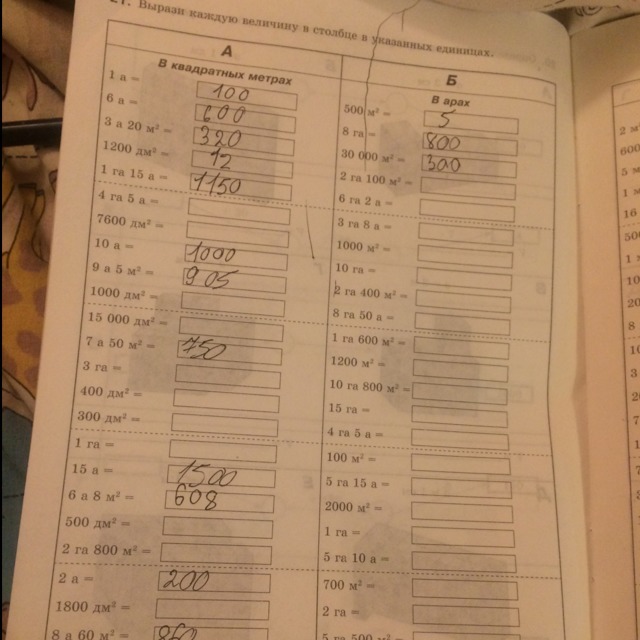 27. Вырази каждую величину в столбце в указанных единицах.
А
В квадратных метрах
1 а = 100
6 а = 600
3 а 20 м² = 320
1200 дм² = 12
1 га 15 а = 1150
4 га 5 а =
7600 дм² =
10 а = 1000
9 а 5 м² = 905
1000 дм² =
15 000 дм² =
7 а 50 м² = 750
3 га =
400 дм² =
300 дм² =
1 га =
15 а = 1500
6 а 8 м² = 608
500 дм² =
2 га 800 м² =
2 а = 200
1800 дм² =
8 а 60 м² = 860
Б
В арах
500 м² = 5
8 га = 800
30 000 м² = 300
2 га 100 м² =
6 га 2 а =
3 га 8 а =
1000 м² =
10 га =
2 га 400 м² =
8 га 50 а =
1 га 600 м² =
1200 м² =
10 га 800 м² =
15 га =
4 га 5 а =
100 м² =
5 га 15 а =
2000 м² =
1 га =
5 га 10 а =
700 м² =
2 га =
5 га 500 м² =